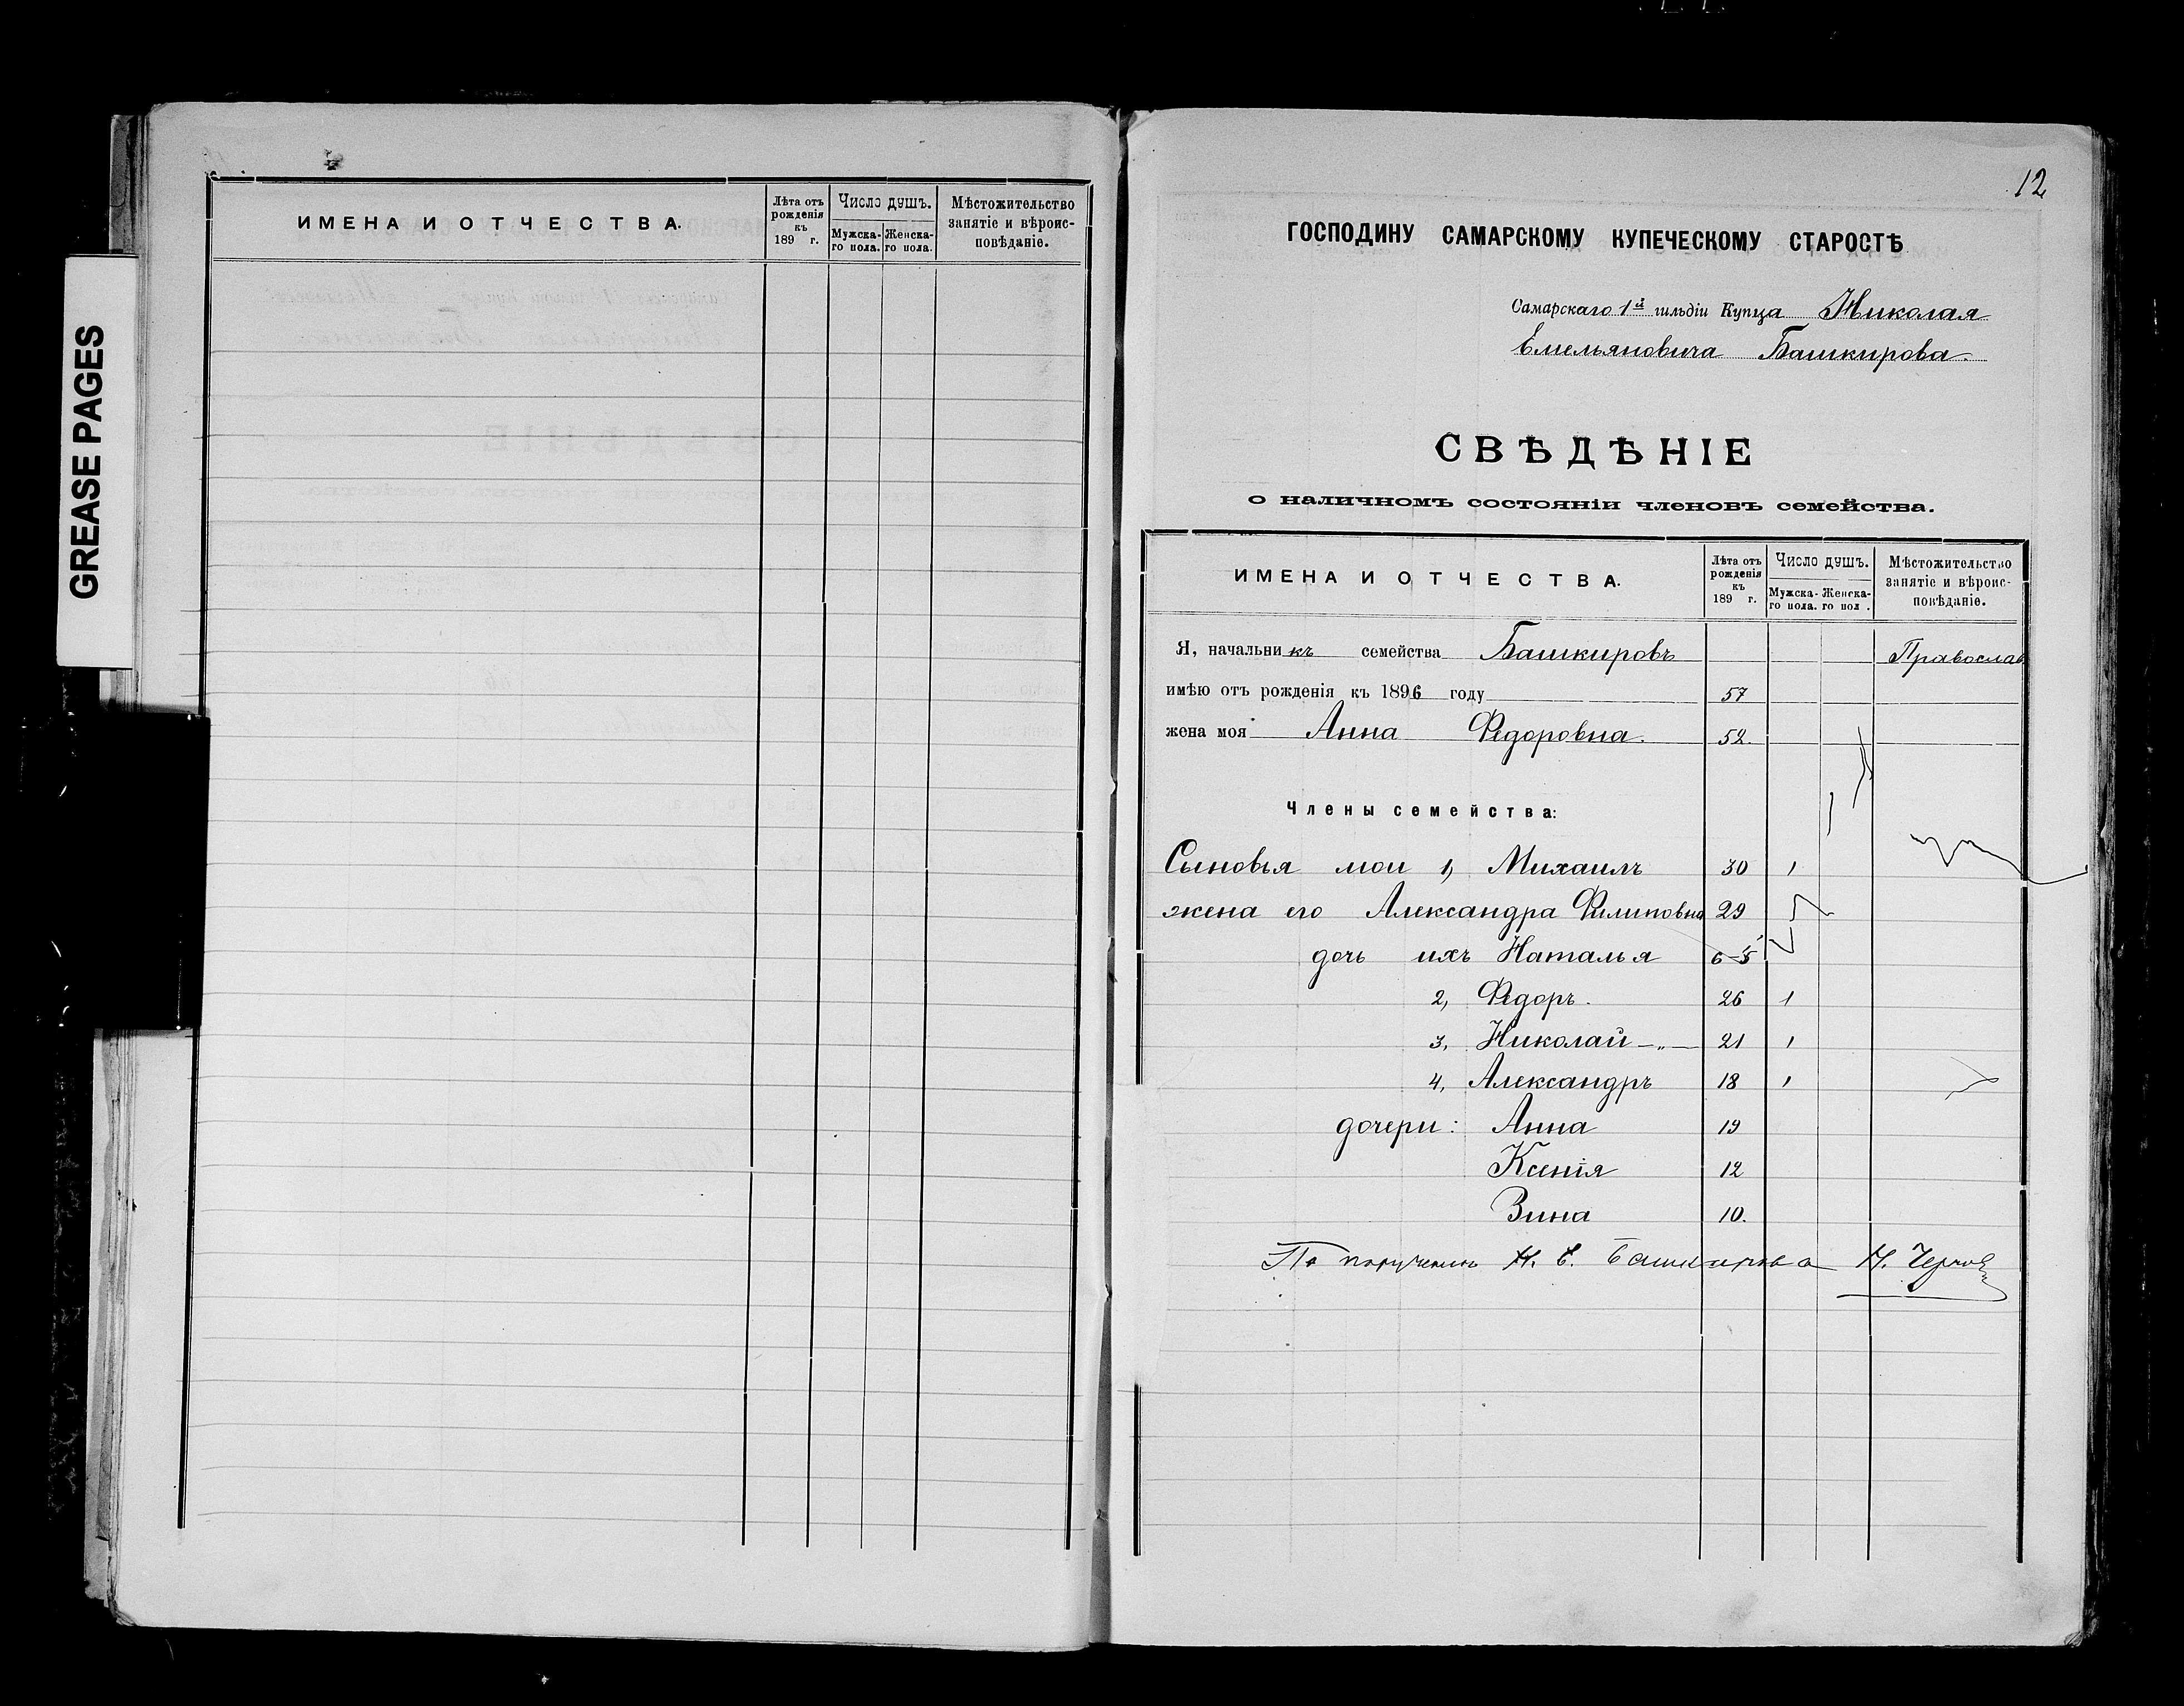 GREASE PAGES
ИМЕНА И ОТЧЕСТВА.
Лѣта отъ рожденія къ 189 г.
Число душъ.
Мужска-го пола.
Женска-го пола.
Мѣстожительство занятіе и вѣроис-повѣданіе.
12
ГОСПОДИНУ САМАРСКОМУ КУПЕЧЕСКОМУ СТАРОСТѢ
Самарскаго 1й гильдіи Купца Николая
Емельяновича Башкирова.
СВѢДѢНІЕ
о наличномъ состояніи членовъ семейства.
ИМЕНА И ОТЧЕСТВА.
Лѣта отъ рожденія къ 189 г.
Число душъ.
Мужска-го пола.
Женска-го пол .
Мѣстожительство занятіе и вѣроис-повѣданіе.
Я, начальникъ семейства Башкировъ Православ
имѣю отъ рожденія къ 1896 году 57
жена моя Анна Федоровна. 52.
Члены семейства:
Сыновья мои 1, Михаилъ 30 1
жена его Александра Филиповна 29
дочь ихъ Наталья 6-5
2, Федоръ. 26 1
3, Николай -„- 21 1
4, Александръ 18 1
дочери: Анна 19
Ксенія 12
Зина 10.
По порученію Н. Е. Башкирова Н.